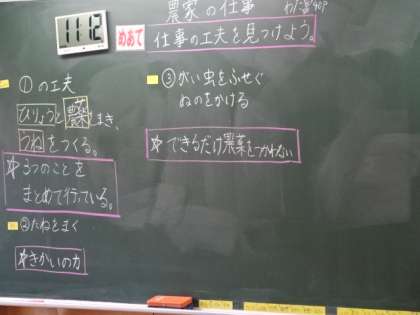 農家の仕事
11:12
めあて 仕事の工夫を見つけよう。
①の工夫
ひりょうと農薬をまき、
うねをつくる。
☆3つのことを
まとめて行っている。
②たねをまく
☆きかいの力
③がい虫をふせぐ
ぬのをかける
☆できるだけ農薬をつかわない